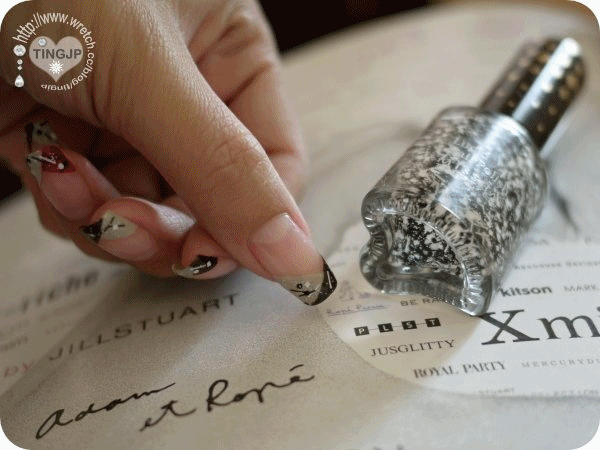 http://www.wretch.cc/blog/tingjp
TINGJP
kitson MARK
BE RA
PLST
JUSGLITTY
Xmi
ROYAL PARTY MERCURYD
STUART
riche
by JILLSTUART
Adam
et Ropé